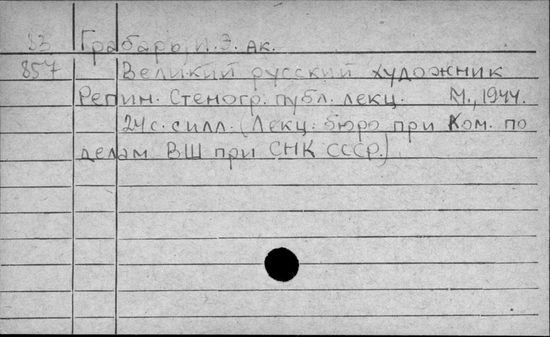 83 Грабарь, И. Э. ак.
857 Великий русский художник
Репин. Стеногр. публ. лекц. М., 1944.
24 с. с илл. (Лекц. бюро при Ком. по
делам ВШ при СНК СССР.)